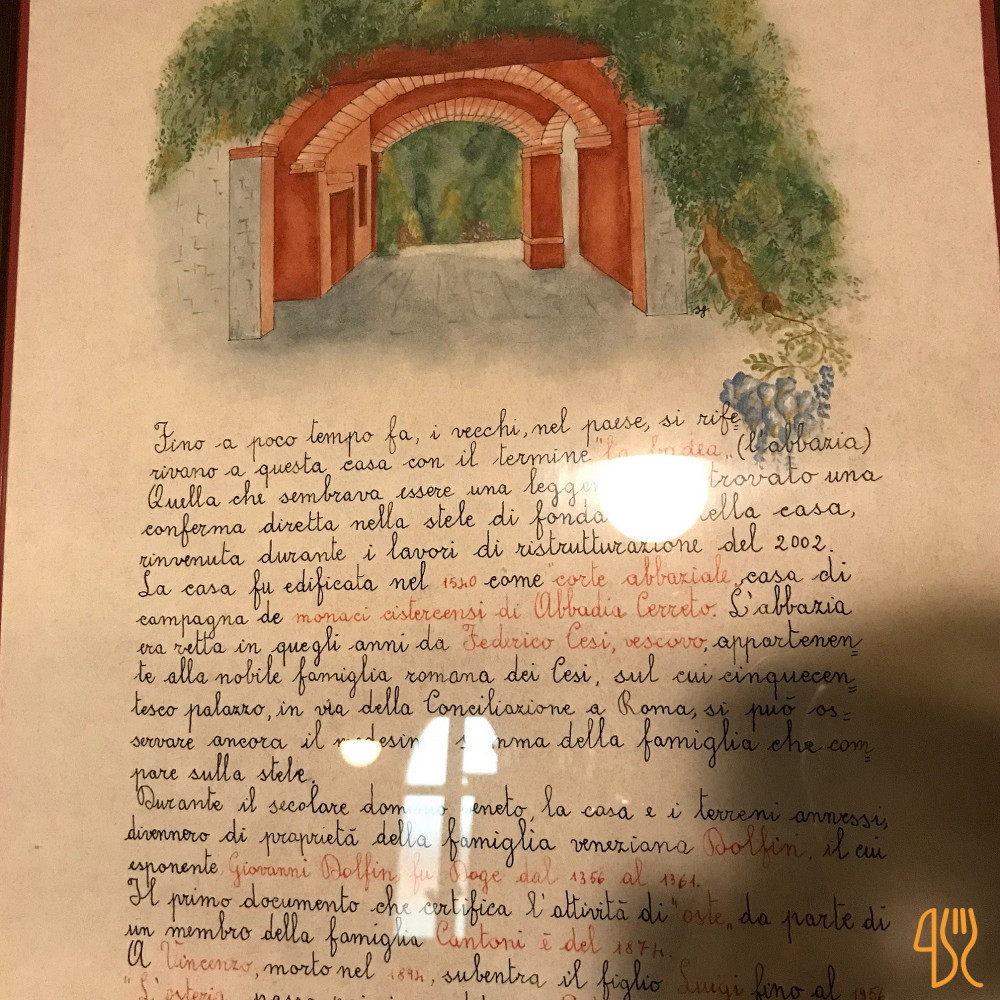 sg
Fino a poco tempo fa, i vecchi, nel paese, si rife=
rivano a questa casa con il termine "la badea" (l'abbazia)
Quella che sembrava essere una trovato una
conferma diretta nella stele di della casa,
rinvenuta durante i lavori di ristrutturazione del 2002.
La casa fu edificata nel 1540 come "corte abbaziale" casa di
campagna de monaci cistercensi di Abbadia Cerreto. L'abbazia
era retta in quegli anni da Federico Cesi, vescovo, appartenen=
te alla nobile famiglia romana dei Cesi, sul cui cinquecen=
tesco palazzo, in via della Conciliazione a Roma, si può os=
servare ancora il della famiglia che com=
pare sulla stele.
Durante il secolare veneto, la casa e i terreni annessi,
divennero di proprietà della famiglia veneziana Dolfin, il cui
esponente Giovanni Dolfin fu Doge dal 1356 al 1361.
Il primo documento che certifica l'attività di "oste" da parte di
un membro della famiglia Cantoni è del 1874.
A Vincenzo, morto nel 1894, subentra il figlio Luigi fino al 1956
"L'osteria